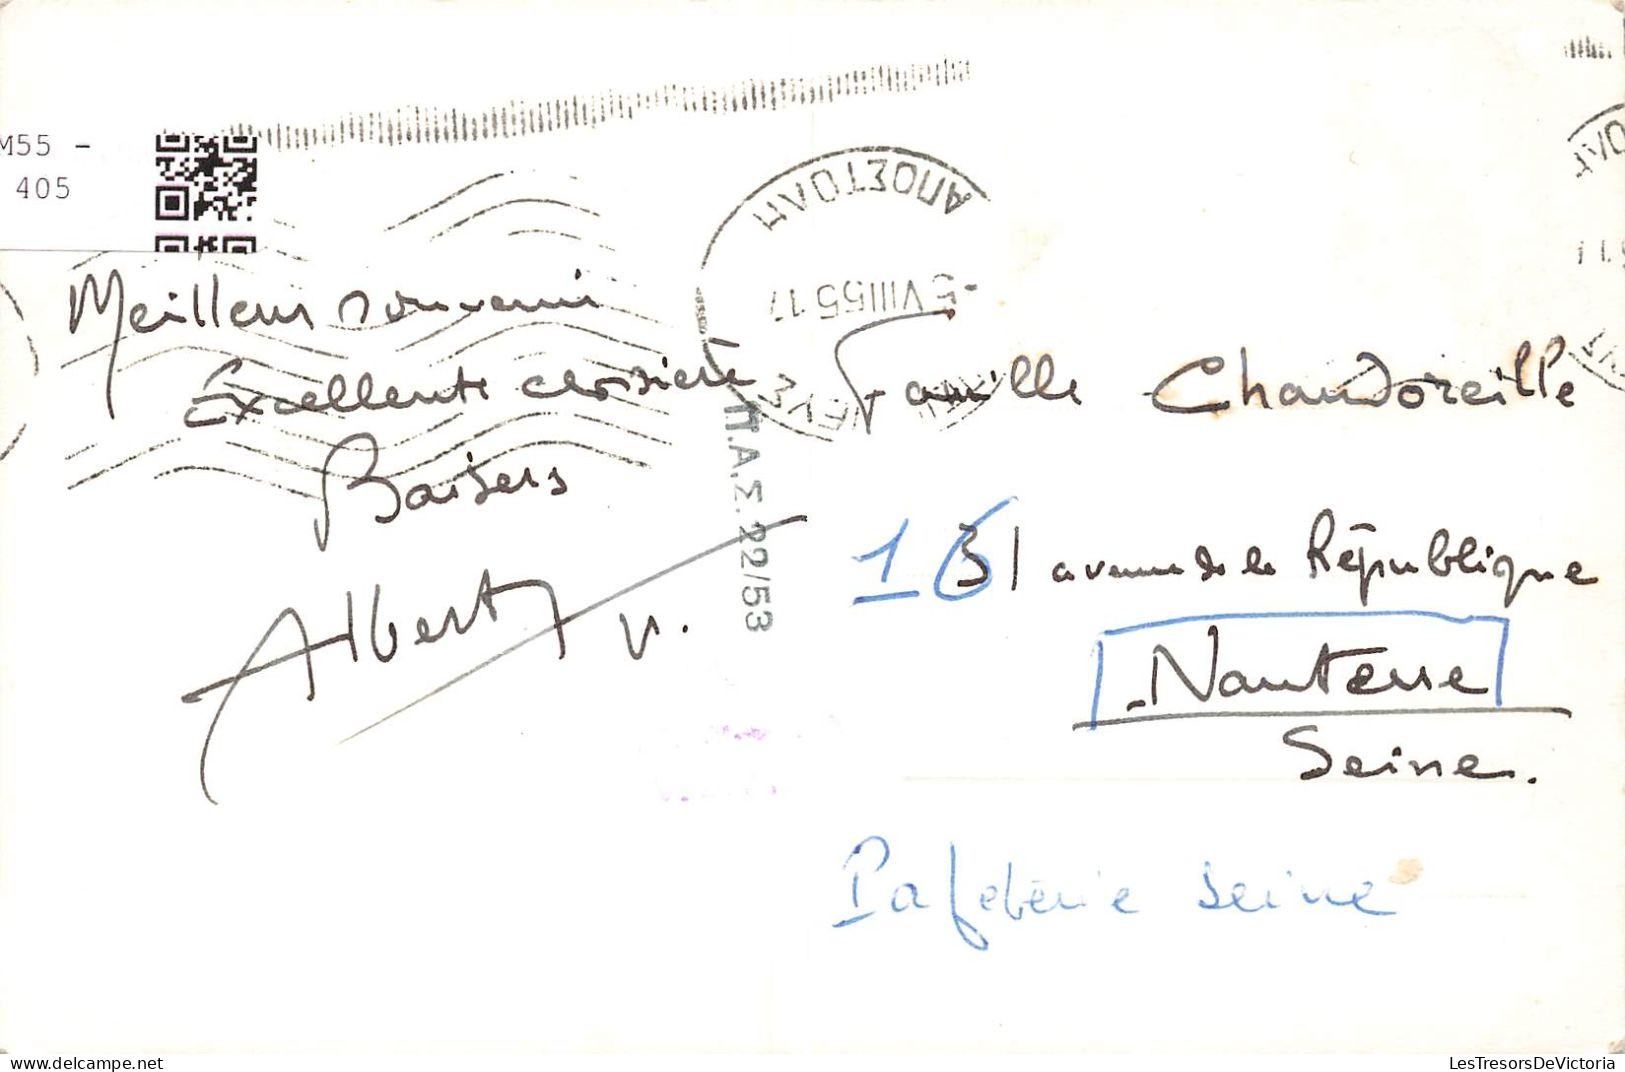 M55 -
405
ΑΠΟΣΤΟΛΗ
-5 VIII 55 17
Meilleur souvenir
Excellente croisière
Baisers
Albert
Π.Α.Σ. 22/53
Famille Chaudoreille
16 31 avenue de la République
Nanterre
Seine.
Papeterie Seine
LesTresorsDeVictoria